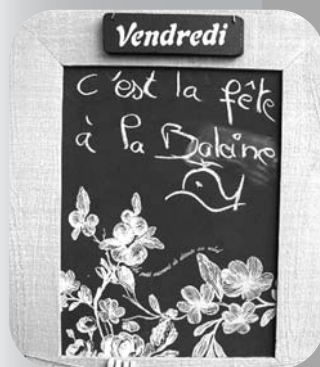 Vendredi
c'est la fête
à la Baleine